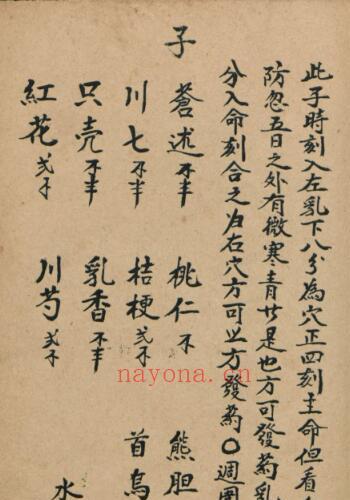 此子時刻入左乳下八分為穴正四刻主命但看
防忽五日之外有微寒青
是也方可發药乳
分入命刻合之为右穴方可止方發药〇週围
子
蒼述 不半 桃仁 不 熊胆
川七 不半 桔梗 弍不 首乌
只壳 不半 乳香 不半 水
紅花 弍不 川芎 弍不
nayona.cn